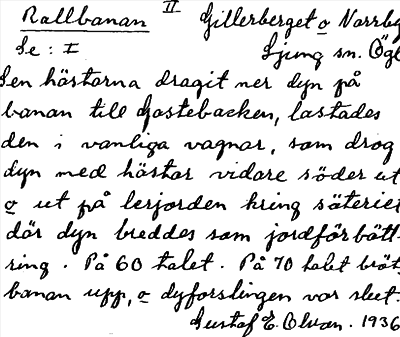 Rallbanan II Gillerberget o Norrby
Se : I Ljung sn. Ögl
Sen hästarna dragit ner dyn på
banan till Gastebacken, lastades
den i vanliga vagnar, som drog
dyn med hästar vidare söder ut
o ut på lerjorden kring säteriet
där dyn breddes som jordförbätt-
ring. På 60 talet. På 70 talet bröts
banan upp, o dyforslingen var slut.
Gustaf E. Olson. 1936